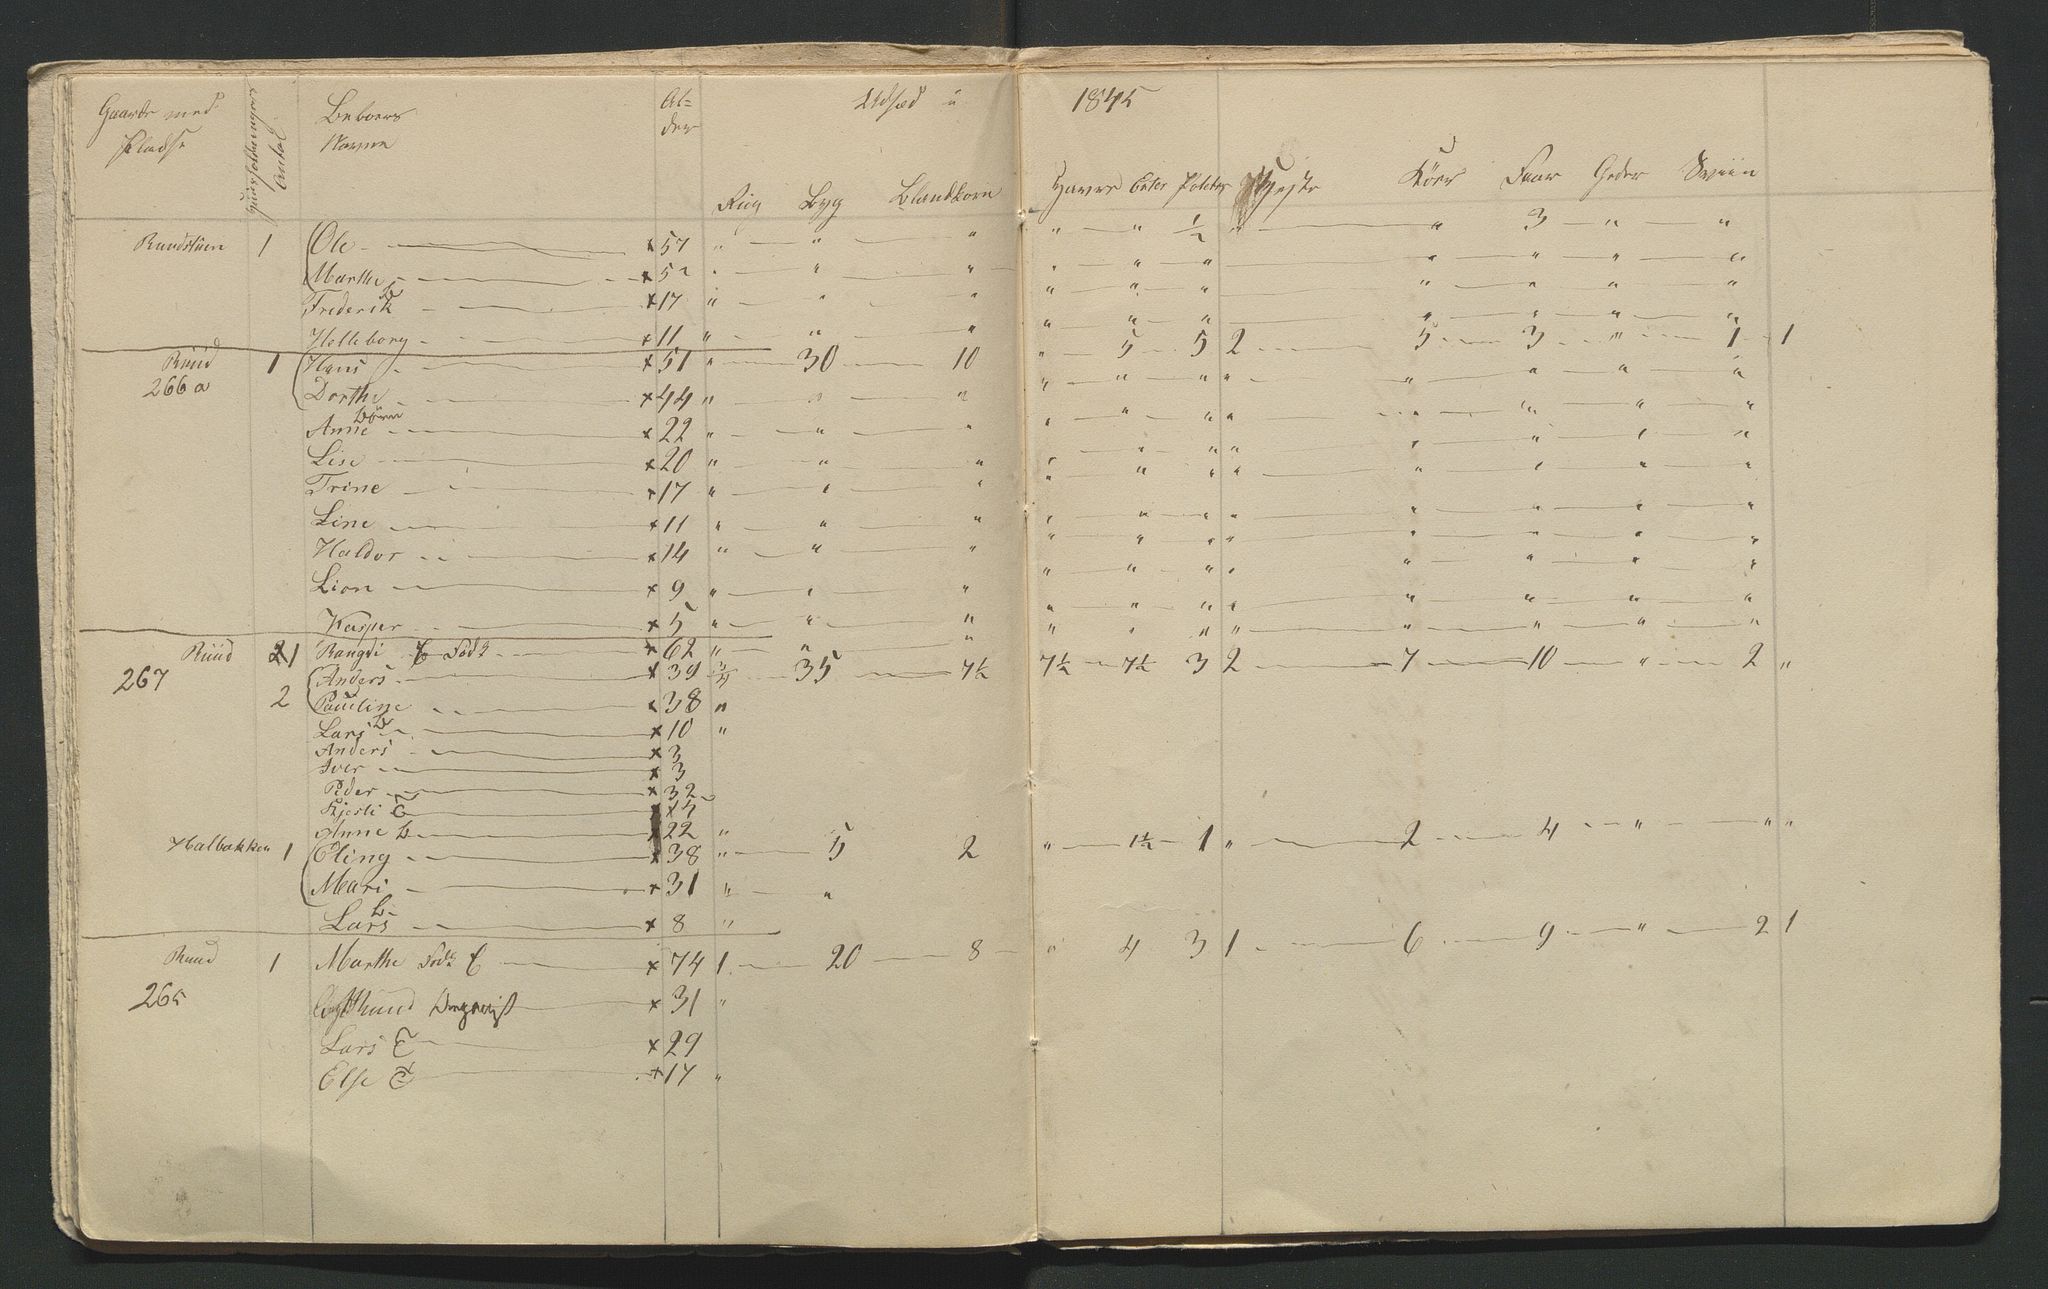 Gaarde med Pladse Huusholdningers Antal Beboers Navne Al- der Udsæd i 1845
Rug Byg Blandkorn Havre Erter Poteter Heste Köer Faar Geder Sviin
Ruudstuen 1 Ole 57 " " " " " 1/2 " " 3 " "
Marthe 52 " " " " " " " " " "
Frederik B 17 " " " " " " " " " "
Helleborg 11 " " " " " " " " " "
Ruud 1 Hans 51 " 30 10 " 5 5 2 5 3 " 1 1
266 a Dorthe 44 " " " " " " " " " " "
Börn
Anne 22 " " " " " " " " " " "
Lise 20 " " " " " " " " " " "
Trine 17 " " " " " " " " " " "
Line 11 " " " " " " " " " " "
Haldor 14 " " " " " " " " " " "
Lion 9 " " " " " " " " " " "
Kasper 5 " " " " " " " " " " "
Ruud 1 Rangdi E Födr 62 " " "
267 Anders 39 3/4 35 7 1/2 7 1/2 7 1/2 3 2 7 10 " 2 "
2 Pauline 38 "
Lars B 10 "
Anders 3
Iver 3
Peder 32
Kjersti T
Anne L 22 "
Halbakken 1 Eling 38 " 5 2 " 1 1/2 1 " 2 4 " " "
Mari 31 " "
Lars B 8 "
Ruud 1 Marthe Födr E 74 1 20 8 " 4 3 1 6 9 " 2 1
265 31 "
Lars T 29
Else T 17 "